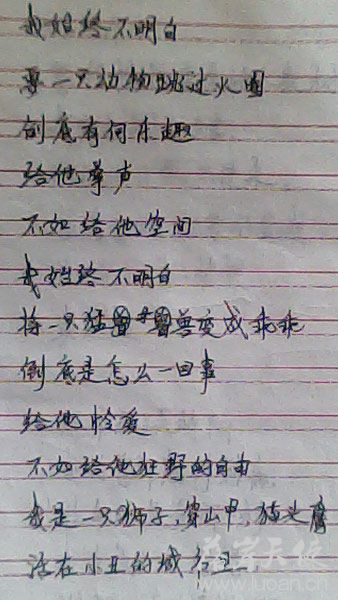 我始终不明白
要一只动物跳过火圈
倒底有何乐趣
给他掌声
不如给他空间
我始终不明白
将一只猛兽变成乖乖
倒底是怎么一回事
给他怜爱
不如给他狂野的自由
我是一只狮子,穿山甲,猫头鹰
活在小丑的城
www.luoan.cn